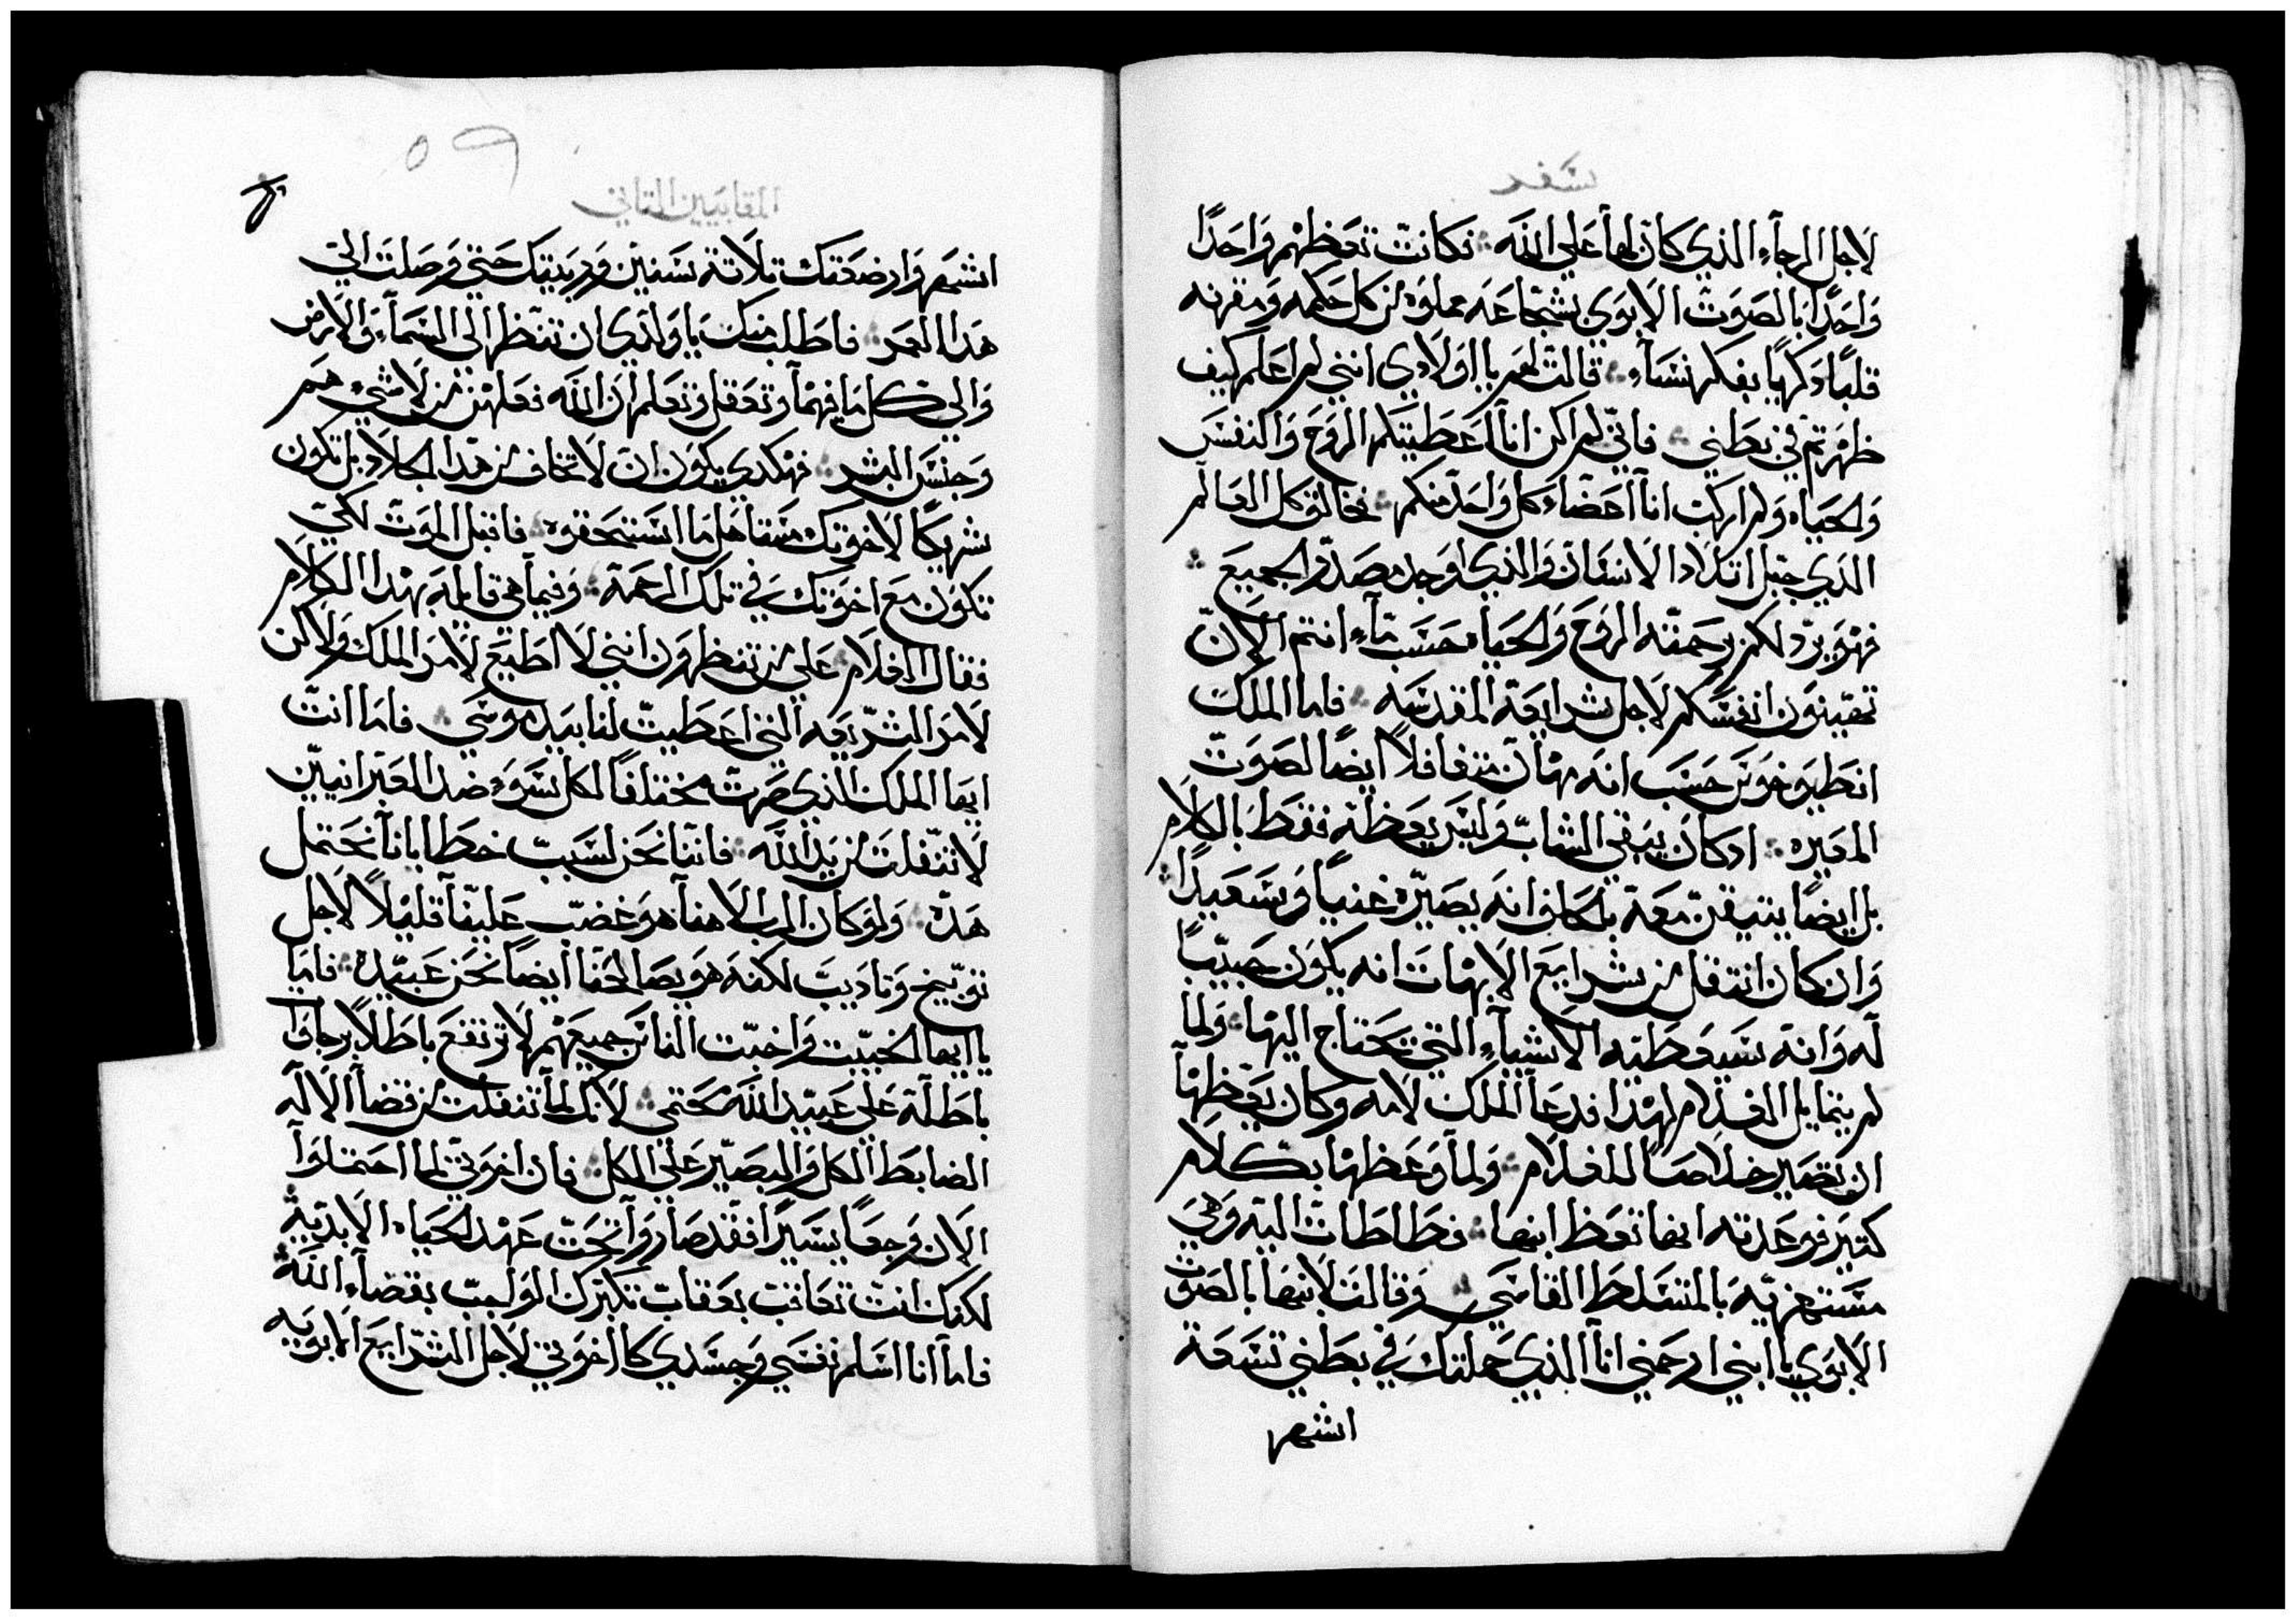 سفر
لاجل الرجآء الذي كان لها علي الله فكانت تعظهم واحدًا
واحدًا بالصوت الابوي بشجاعه مملوه من كل حكمه ومقرنه
قلبًا ذكريًا بفكر نسآء قالت لهم يا اولادي انني لم اعلم كيف
ظهرتم في بطني فاني لم اكن انا اعطيتكم الروح والنفس
والحياه ولم اركب انا اعضآء كل واحد منكم فخالق كل العالم
الذي جبل اتلاد الانسان والذي اوجد صدر الجميع
فهو يرد لكم برحمته الروح والحياه حسب مآ انتم الان
تهينون انفسكم لاجل شرايعه المقدسه فاما الملك
انطيوخوس حسب انه مهان متغافلًا ايضا لصوت
المعيره اذ كان يبقي الشاب وليس يعظه فقط بالكلام
بل ايضا يتيقن معه بالحلف انه يصيره غنيًا وسعيدًا
وان كان انتقل من شرايع الابهات انه يكون حبيبًا
له وانه سيعطيه الاشيآء التي تحتاج اليها ولما
لم يتمايل الغلام لهذا فدعا الملك لامه وكان يعظها
ان تصير خلاصا للغلام ولما وعظها بكلام
كتير فوعدته انها تعظ ابنها فطاطات اليه وهي
مستهزيه بالمتسلط القاسي وقالت لابنها بالصوت
الابوي يا ابني ارحمني انا الذي حملتك في بطني تسعة
اشهر
٥٩
المقابيين التاني
اشهر وارضعتك تلاتة سنين وربيتك حتي وصلت الي
هذا العمر فاطلب منك يا ولدي ان تنظر الي السمآء والارض
والي كل ما فيهمآ وتعقل وتعلم ان الله فعلهن من لا شيء هم
وجنس البشر فهكدي يكون ان لا تخاف من هذا الجلاد بل تكون
شريكًا لاخوتك متقاهل ما استحقوه فاقبل الموت لكي
تكون مع اخوتك في تلك الرحمة وفيما هي قايله بهذا الكلام
فقال الغلام علي من تنظرون انني لا اطيع لامر الملك ولاكن
لامر الشريعه التي اعطيت لنا بيد موسي فاما انت
ايها الملك الذي صرت مختلفًا لكل سوء ضد العبرانيين
لا تنفلت من يد الله فاننا نحن لسبب خطايانآ نحتمل
هذه ولو كان الرب الاهنآ هو غضب علينآ قليلًا لاجل
توبيخ وتاديب لكنه هو يصالحنا ايضا نحن عبيده فاما
يا ايها الخبيت واخبت الناس جميعهم لا ترتفع باطلًا برجاوا
باطلة علي عبيد الله محتمي لانك لمآ تنفلت من قضآ الاله
الضابط الكل والبصير علي الكل فان اخوتي لما احتملوآ
الان وجعًا يسيرًا فقد صاروآ تحت عهد الحياه الابدية
لكنك انت تعاقب بعقاب تكبرك الواجب بقضآء الله
فاما انا اسلم نفسي وجسدي كاخوتي لاجل الشرايع الابويه